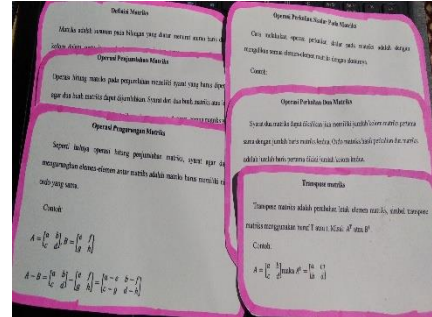 Definisi Matriks
Matriks adalah susunan pada bilangan yang diatur menurut aturan baris
Operasi Penjumlahan Matriks
Operasi hitung matriks pada penjumlahan memiliki syarat yang harus
agar dua buah matriks dapat dijumlahkan. Syarat dari dua buah matriks atau
Operasi Pengurangan Matriks
Seperti halnya operasi hitung penjumlahan matriks, syarat agar
mengurangkan elemen-elemen antar matriks adalah matriks harus memiliki
ordo yang sama.
Contoh:
A = [a b c d], B = [e f g h]
A − B = [a b c d] − [e f g h] = [a − e b − f c − g d − h]
Operasi Perkalian Skalar Pada Matriks
Cara melakukan operasi perkalian skalar pada matriks adalah dengan
mengalikan semua elemen-elemen matriks dengan skalarnya.
Contoh:
Operasi Perkalian Dua Matriks
Syarat dua matriks dapat dikalikan jika memiliki jumlah kolom matriks pertama
sama dengan jumlah baris matriks kedua. Ordo matriks hasil perkalian dua matriks
adalah jumlah baris pertama dikali jumlah kolom kedua.
Transpose matriks
Transpose matriks adalah perubahan letak elemen matriks, simbol transpose
matriks menggunakan
Contoh: